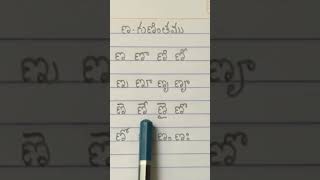 ణ-గుణింతము
ణ ణా ణి ణీ
ణు ణూ ణృ ణౄ
ణె ణే ణై ణొ
ణో ణం ణః